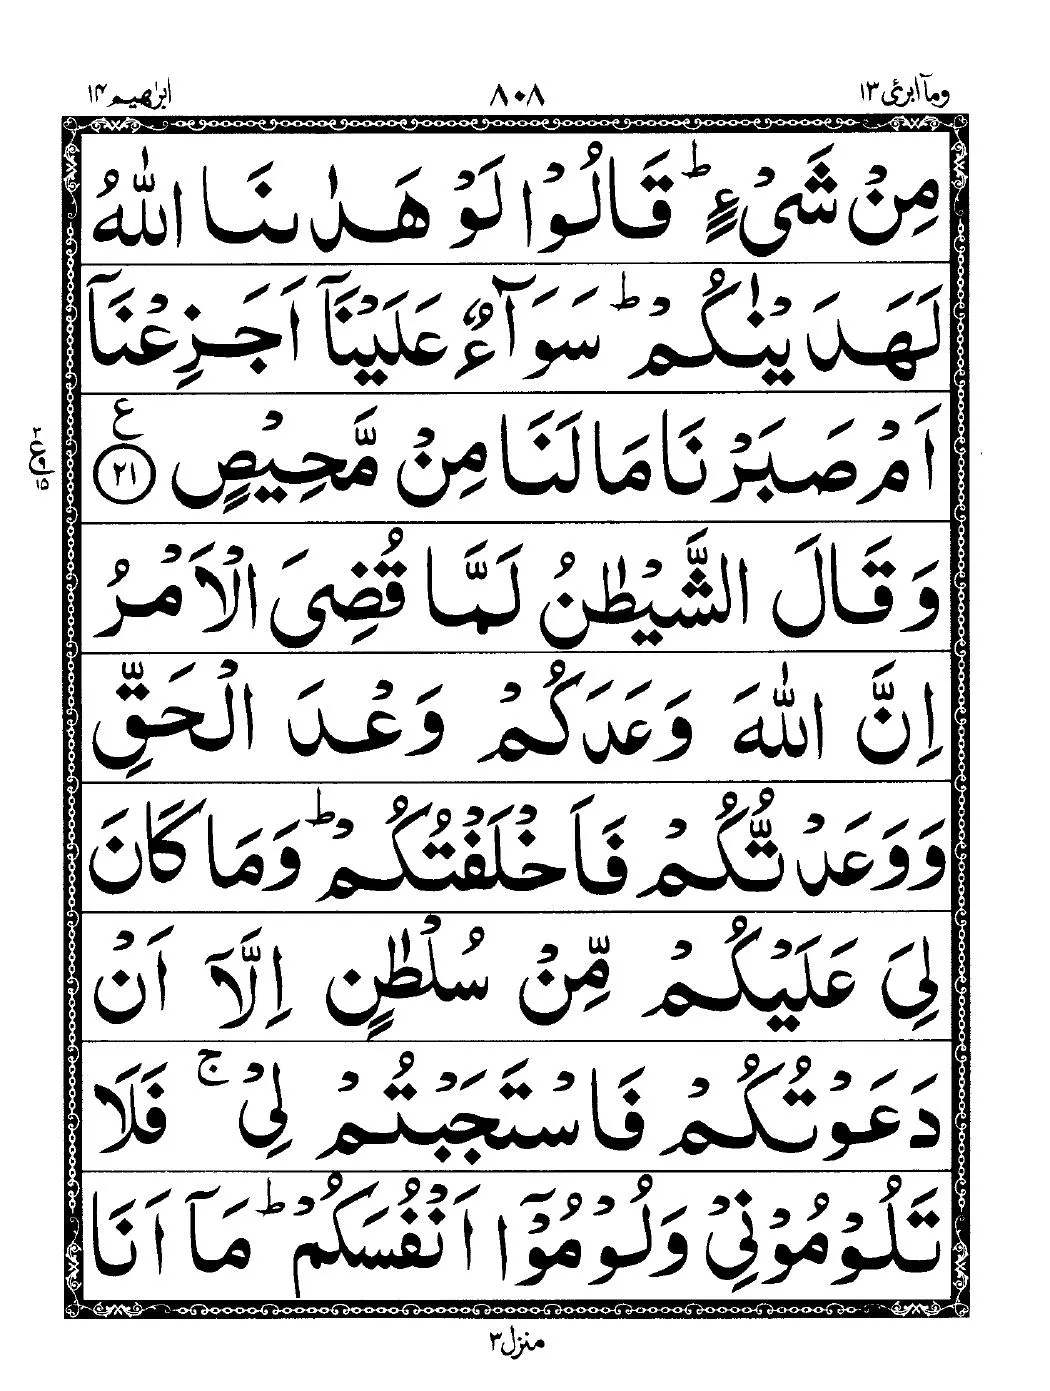 وماۤ ابرئ ١٣
٨٠٨
ابرٰهیم ١۴
مِنْ شَیْءٍ ؕ قَالُوْا لَوْ هَدٰىنَا اللّٰهُ
لَهَدَیْنٰكُمْ ؕ سَوَآءٌ عَلَیْنَاۤ اَجَزِعْنَاۤ
اَمْ صَبَرْنَا مَا لَنَا مِنْ مَّحِیْصٍ ۝٢١ ع
وَقَالَ الشَّیْطٰنُ لَمَّا قُضِیَ الْاَمْرُ
اِنَّ اللّٰهَ وَعَدَكُمْ وَعْدَ الْحَقِّ
وَوَعَدْتُّكُمْ فَاَخْلَفْتُكُمْ ؕ وَمَا كَانَ
لِیَ عَلَیْكُمْ مِّنْ سُلْطٰنٍ اِلَّاۤ اَنْ
دَعَوْتُكُمْ فَاسْتَجَبْتُمْ لِیْ ۚ فَلَا
تَلُوْمُوْنِیْ وَلُوْمُوْۤا اَنْفُسَكُمْ ؕ مَاۤ اَنَا
منزل ٣